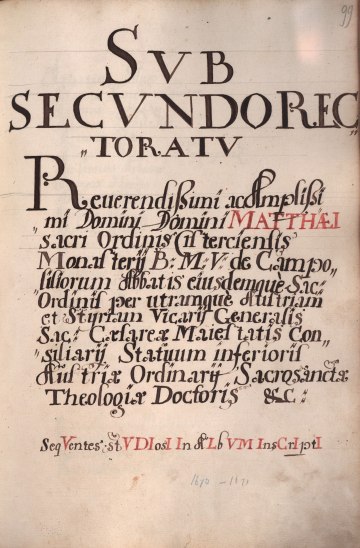 99
SVB
SECVNDO REC
„TORATV
Reverendissimi ac Amplissi
„mi Domini Domini MATTHÆI
sacri Ordinis Cisterciensis
Monasterij B: M: V: de Campo„
„liliorum Abbatis eiusdemque Sac:
Ordinis per utramque Austriam
et Styriam Vicarij Generalis
Sac: Cæsareæ Maiestatis Con„
„siliarij Statuum inferioris
Austriæ Ordinarij Sacrosanctæ
Theologiæ Doctoris &c:
SeqVentes stVDIosI In ALbVM InsCrIptI